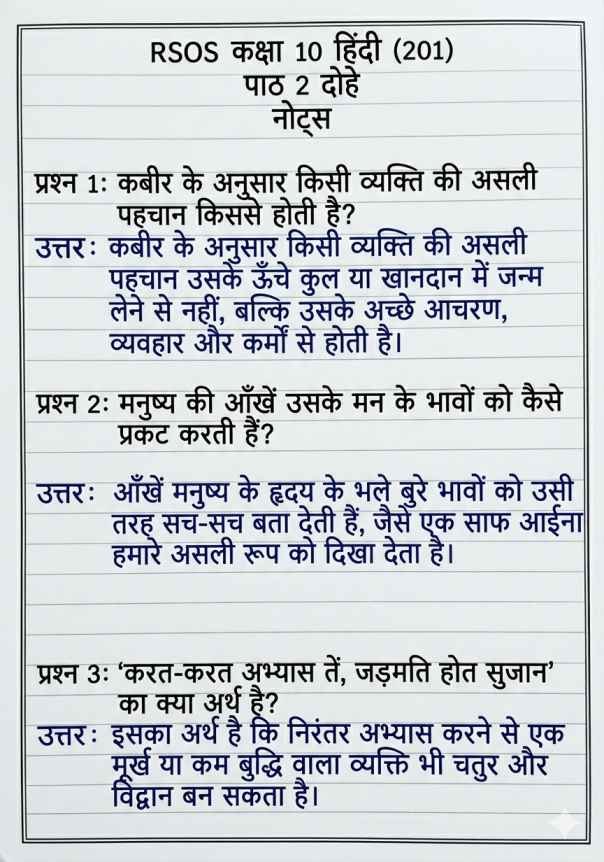 RSOS कक्षा 10 हिंदी (201)
पाठ 2 दोहे
नोट्स
प्रश्न 1: कबीर के अनुसार किसी व्यक्ति की असली
पहचान किससे होती है?
उत्तर: कबीर के अनुसार किसी व्यक्ति की असली
पहचान उसके ऊँचे कुल या खानदान में जन्म
लेने से नहीं, बल्कि उसके अच्छे आचरण,
व्यवहार और कर्मों से होती है।
प्रश्न 2: मनुष्य की आँखें उसके मन के भावों को कैसे
प्रकट करती हैं?
उत्तर: आँखें मनुष्य के हृदय के भले बुरे भावों को उसी
तरह सच-सच बता देती हैं, जैसे एक साफ आईना
हमारे असली रूप को दिखा देता है।
प्रश्न 3: ‘करत-करत अभ्यास तें, जड़मति होत सुजान’
का क्या अर्थ है?
उत्तर: इसका अर्थ है कि निरंतर अभ्यास करने से एक
मूर्ख या कम बुद्धि वाला व्यक्ति भी चतुर और
विद्वान बन सकता है।